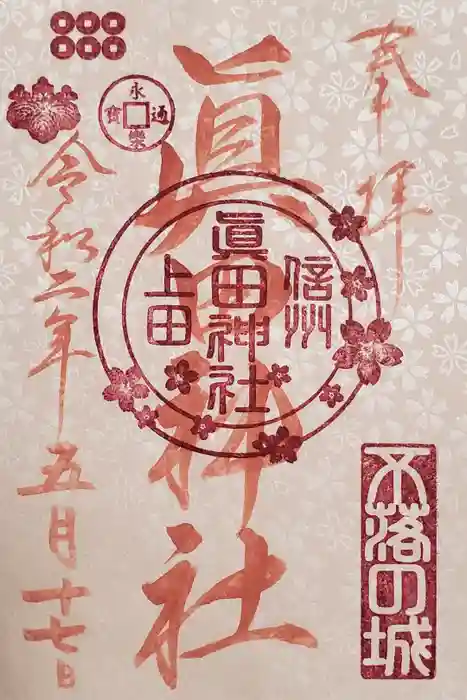 奉拝
眞田神社
信州
眞田神社
上田
永楽通寳
令和二年五月十七日
不落の城